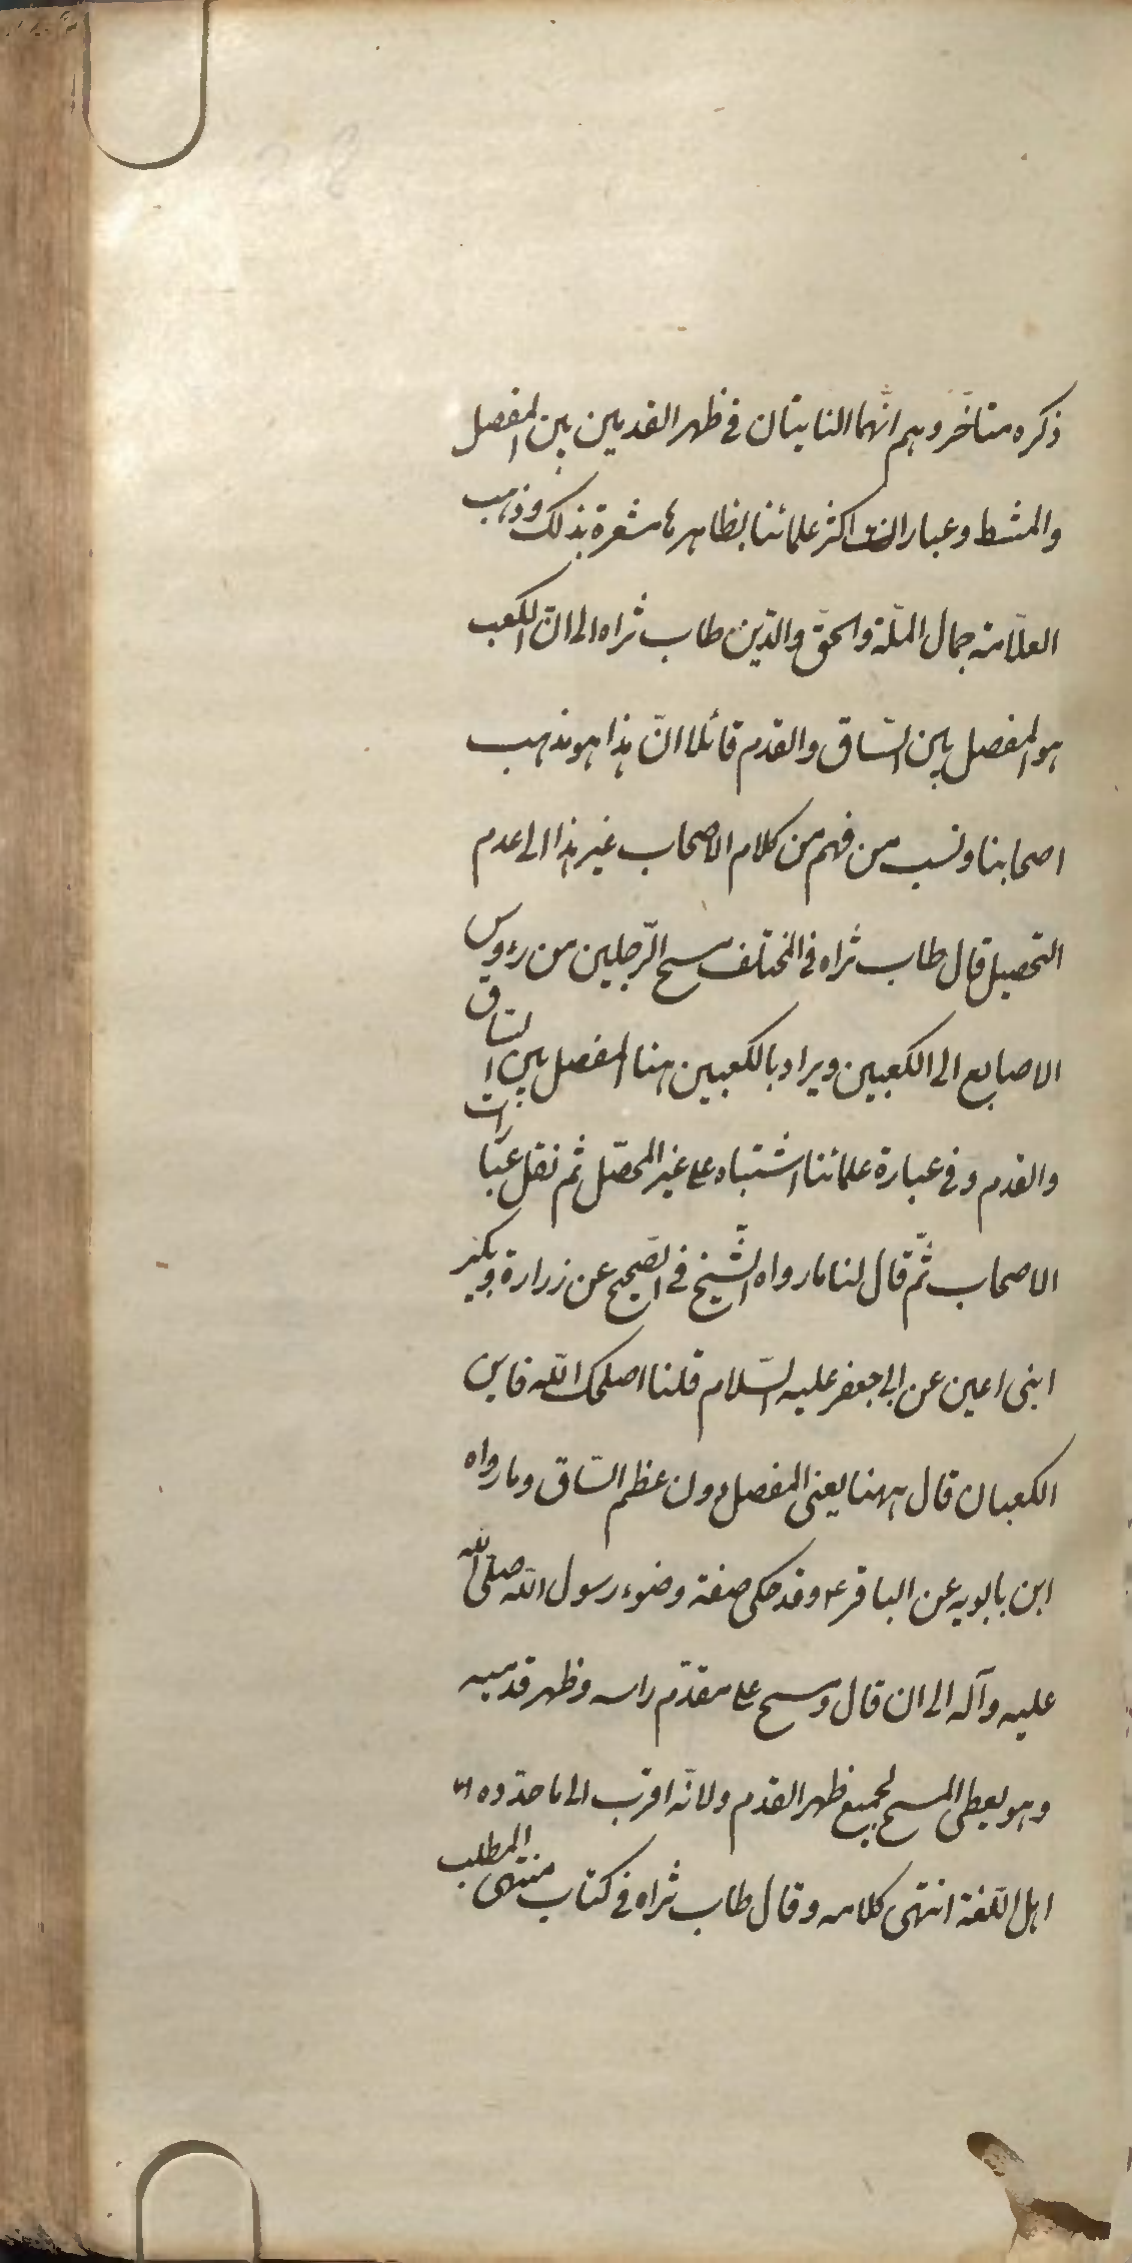 ذكره متأخّروهم انّهما النابتان في ظهر القدمين بين المفصل
والمشط وعبارات اكثر علمائنا بظاهرها مشعرة بذلك وذهب
العلّامة جمال الملّة والحقّ والدّين طاب ثراه الى انّ الكعب
هو المفصل بين السّاق والقدم قائلا انّ هذا هو مذهب
اصحابنا ونسب من فهم من كلام الاصحاب غير هذا الى عدم
التحصيل قال طاب ثراه في المختلف مسح الرّجلين من رءوس
الاصابع الى الكعبين ويراد بالكعبين هنا المفصل بين السّاق
والقدم وفي عبارة علمائنا اشتباه على غير المحصّل ثم نقل عبّارات
الاصحاب ثمّ قال لنا ما رواه الشّيخ في الصّحيح عن زرارة وبكير
ابنى اعين عن ابى جعفر عليه السّلام قلنا اصلحك اللّه فاين
الكعبان قال ههنا يعنى المفصل دون عظم السّاق وما رواه
ابن بابويه عن الباقر ع وقد حكى صفة وضوء رسول اللّه صلّى اللّه
عليه وآله الى ان قال ومسح على مقدّم راسه وظهر قدميه
وهو يعطى المسح لجميع ظهر القدم ولانّه اقرب الى ما حدّده
اهل اللّغة انتهى كلامه وقال طاب ثراه في كتاب منتهى المطلب